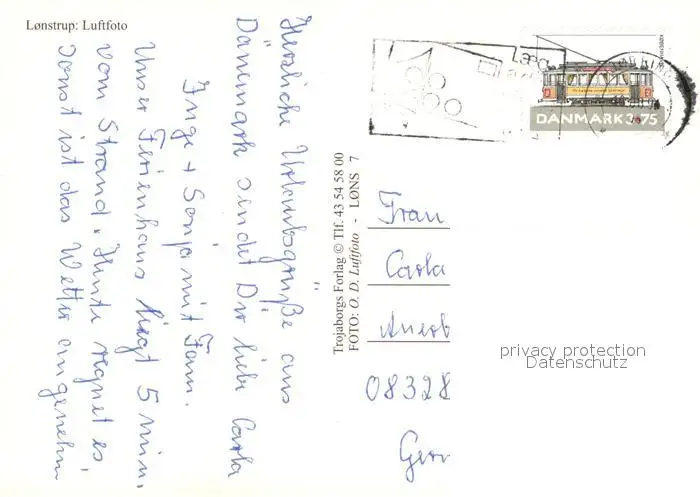 Lønstrup: Luftfoto
Herzliche Urlaubsgrüße aus
Dänemark sendet Dir liebe Carla
Inge + Sonja mit Fam.
Unser Ferienhaus liegt 5 min.
vom Strand. Heute regnet es,
sonst ist das Wetter angenehm
Trojaborgs Forlag © Tlf. 43 54 58 00
FOTO: O. D. Luftfoto - LØNS 7
DANMARK 3.75
Frau
Carla
08328
privacy protection
Datenschutz